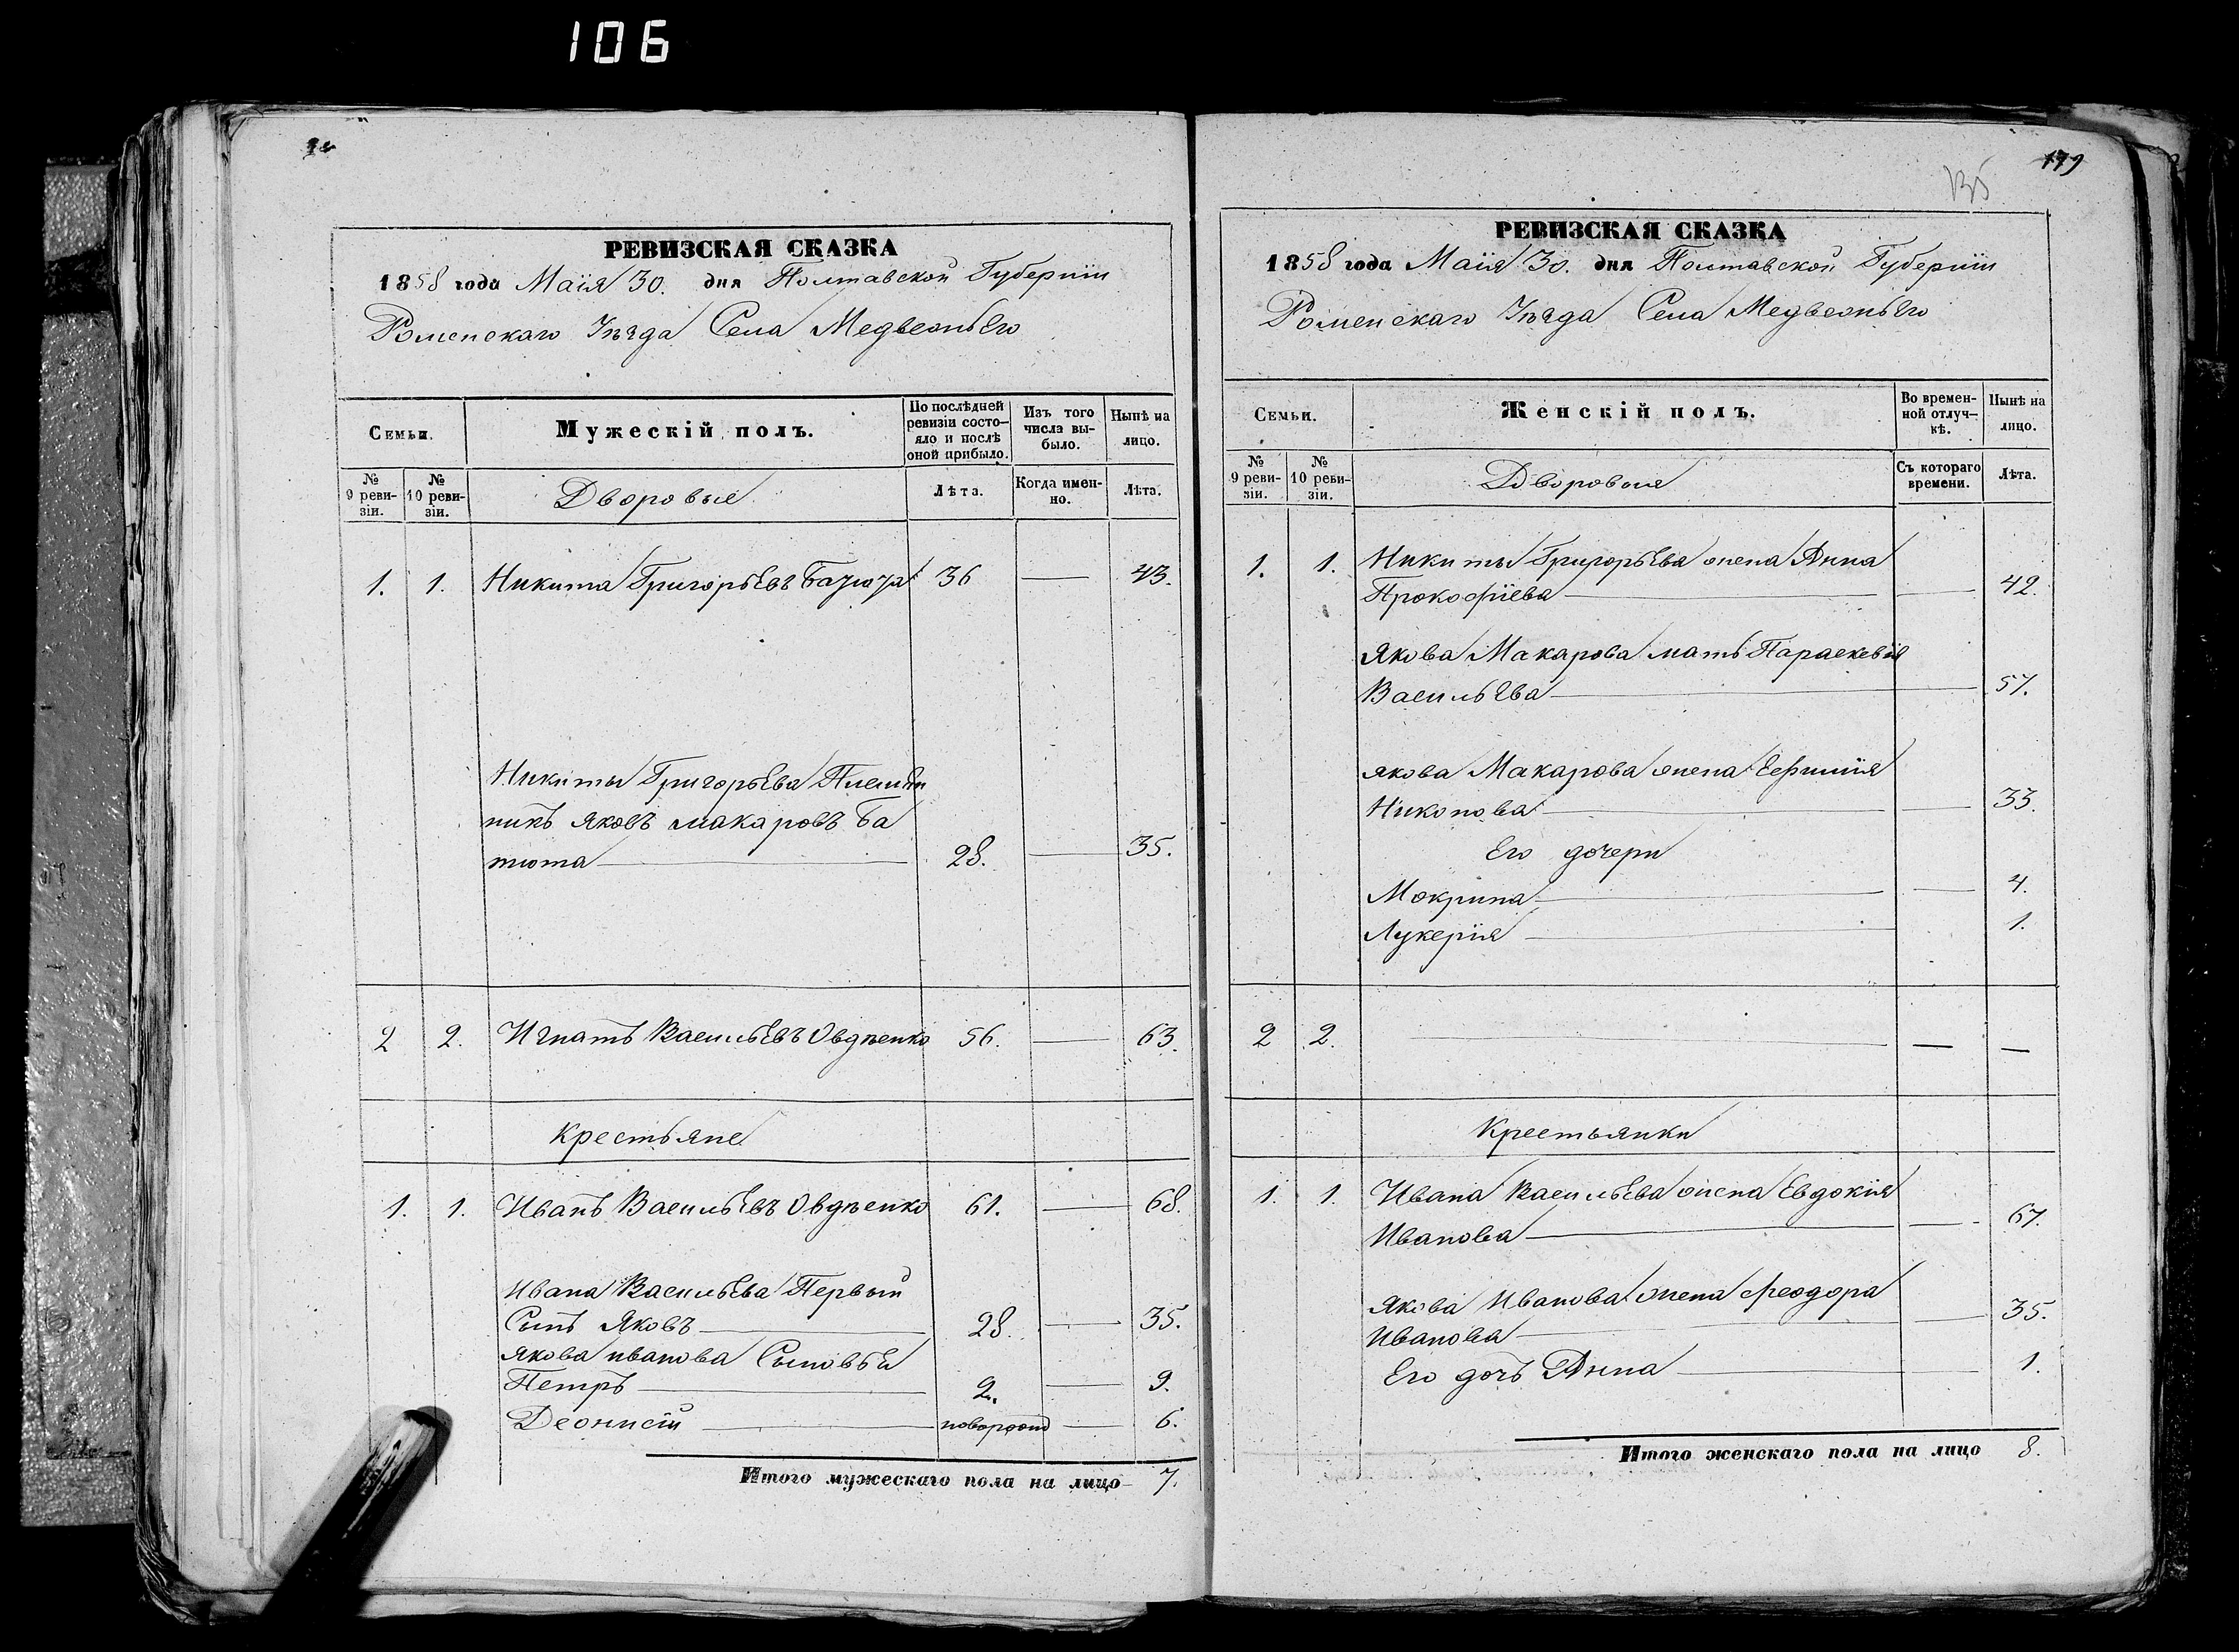 106
179
135
РЕВИЗСКАЯ СКАЗКА
1858 года Маія 30. дня Полтавской Губерніи
Роменскаго Уѣзда Села Медвежьего
Семьи.
Мужескій полъ.
По послѣдней ревизіи состо-яло и послѣ оной прибыло.
Изъ того числа вы-было.
Нынѣ на лицо.
№ 9 реви-зіи.
№ 10 реви-зіи.
Дворовые
Лѣта.
Когда имен-но.
Лѣта.
1. 1. Никита Григорьевъ Батюта 36 — 43.
Никиты Григорьева Племян
никъ Яковъ Макаровъ Ба
тюта — 28. — 35.
2 2. Игнатъ Васильевъ Овдѣенко 56. — 63.
Крестьяне
1. 1. Иванъ Васильевъ Овдѣенко 61. — 68.
Ивана Васильева Первый
Сынъ Яковъ — 28. — 35.
Якова Иванова Сыновьи
Петръ — 2. — 9.
Деонисій — новорожд — 6.
Итого мужескаго пола на лицо 7.
РЕВИЗСКАЯ СКАЗКА
1858 года Маія 30. дня Полтавской Губерніи
Роменскаго Уѣзда Села Медвежьего
Семьи.
Женскій полъ.
Во времен-ной отлуч-кѣ.
Нынѣ на лицо.
№ 9 реви-зіи.
№ 10 реви-зіи.
Дворовыя
Съ котораго времени.
Лѣта.
1. 1. Никиты Григорьева жена Анна
Прокофіева — — 42.
Якова Макарова мать Параскевія
Васильева — 57.
Якова Макарова жена Евфимія
Никонова — — 33.
Его дочери
Мокрина — — 4.
Лукерія — 1.
2 2. — — —
Крестьянки
1. 1. Ивана Васильева жена Евдокія
Иванова — — 67.
Якова Иванова жена Феодора
Иванова — — 35.
Его дочь Анна — — 1.
Итого женскаго пола на лицо 8.